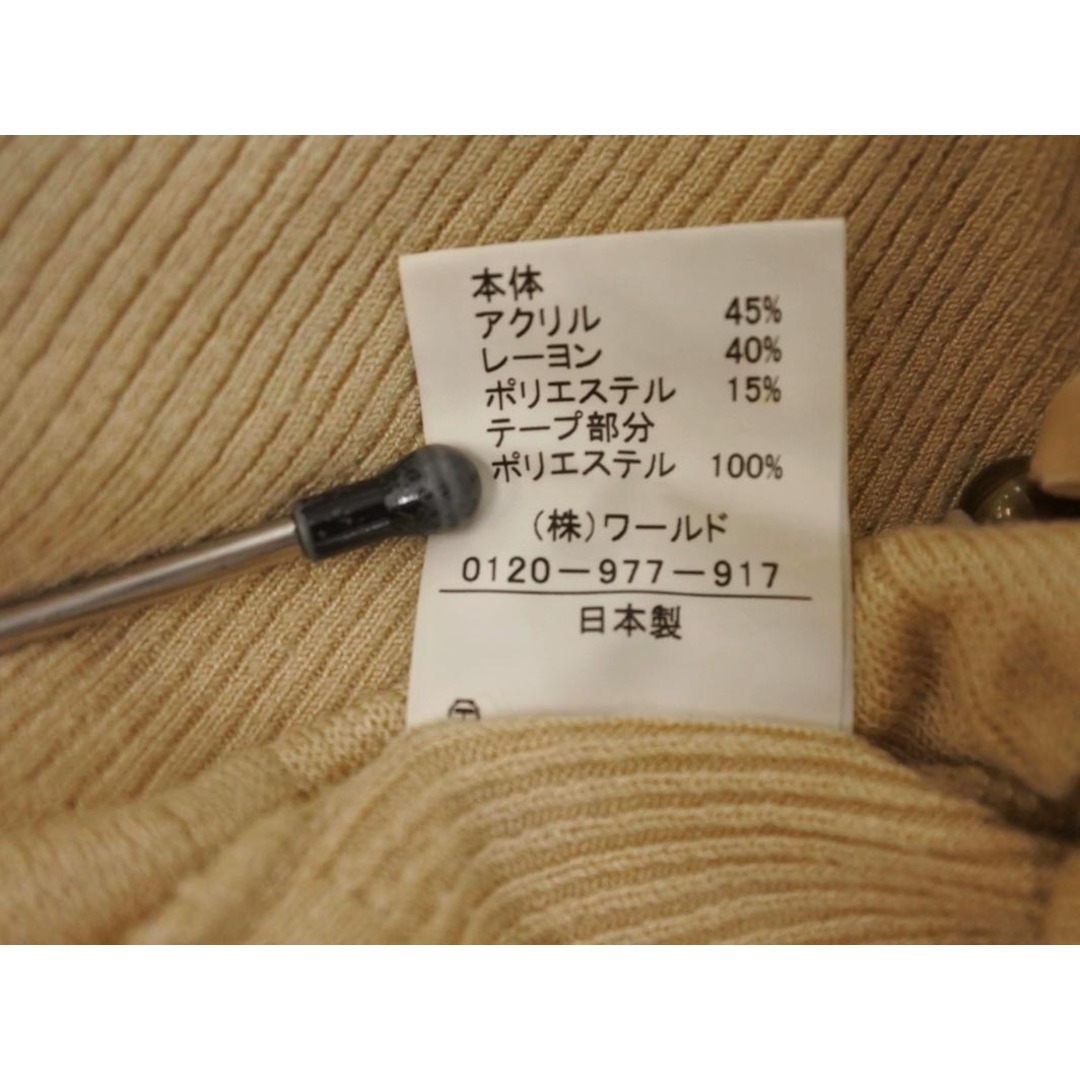 本体
アクリル 45%
レーヨン 40%
ポリエステル 15%
テープ部分
ポリエステル 100%
(株)ワールド
0120-977-917
日本製